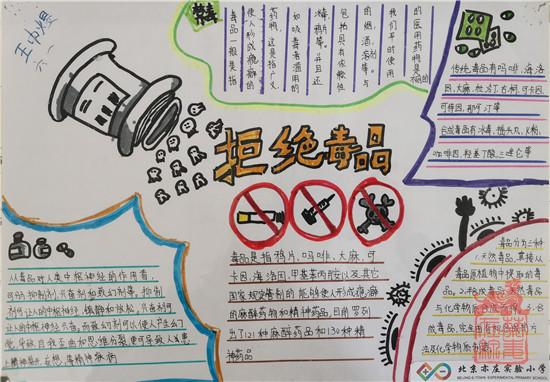 六一
禁毒
毒品一般是指
使人形成瘾癖的
药物,这是指广义
包括具有依赖性
的烟,酒,溶剂等。与
我们平时使用
的医用药物是
传统毒品有吗啡,海洛
因,大麻,杜冷丁,古柯,可卡因,
可待因,那可汀等
合成毒品有冰毒,摇头丸,K粉,
咖啡因,三唑仑等
拒绝毒品
毒品是指鸦片,吗啡,大麻,可
卡因,海洛因,甲基苯丙胺以及其它
国家规定管制的能够使人形成瘾癖
的麻醉药物和精神药品,目前罗列
出了121种麻醉药品和130种精
神药品
从毒品对人类中枢神经的作用看,
可分抑制剂,兴奋剂和致幻剂等。抑制
剂可让人的中枢神经,镇静和放松,兴奋剂可
让人的中枢神经兴奋,而致幻剂可以使人产生幻
觉,导致自我歪曲和思维分裂
毒品分为三种
1.天然毒品,直接从
毒品原植物中提取的毒
品。2.半合成毒品,天然毒品
与化学物质合成
成毒品,完全由有机合成的方
法及化学物质制造
北京亦庄实验小学
BEIJING E-TOWN EXPERIMENTAL PRIMARY SCHOOL